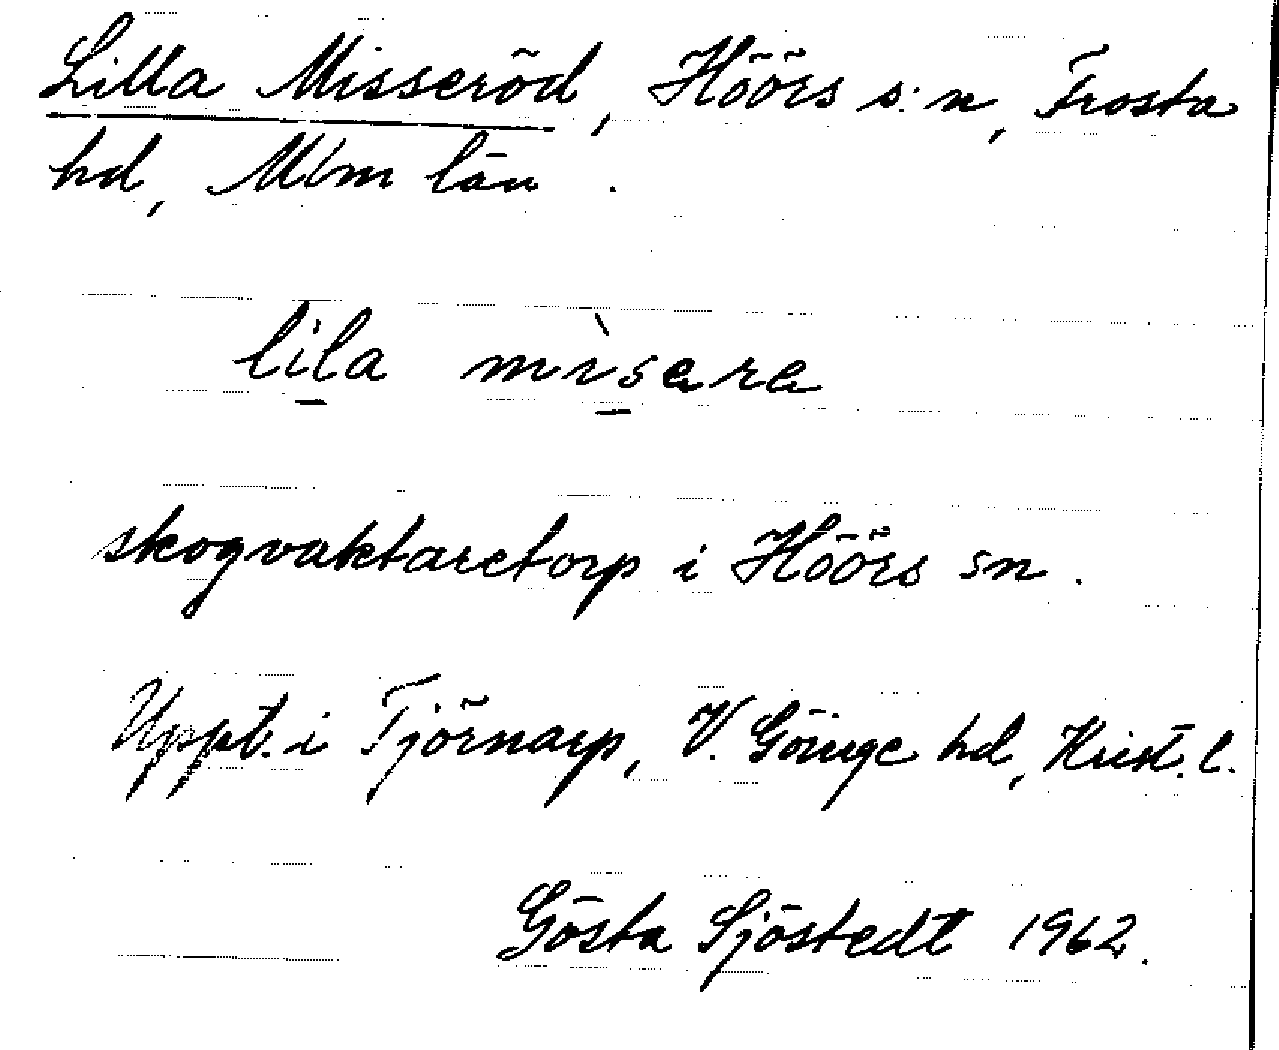 Lilla Misseröd, Höörs s:n, Frosta
hd, Mlm län.
lila mìsara
skogvaktaretorp i Höörs sn.
Uppt. i Tjörnarp, V. Göinge hd, Krist. l.
Gösta Sjöstedt 1962.